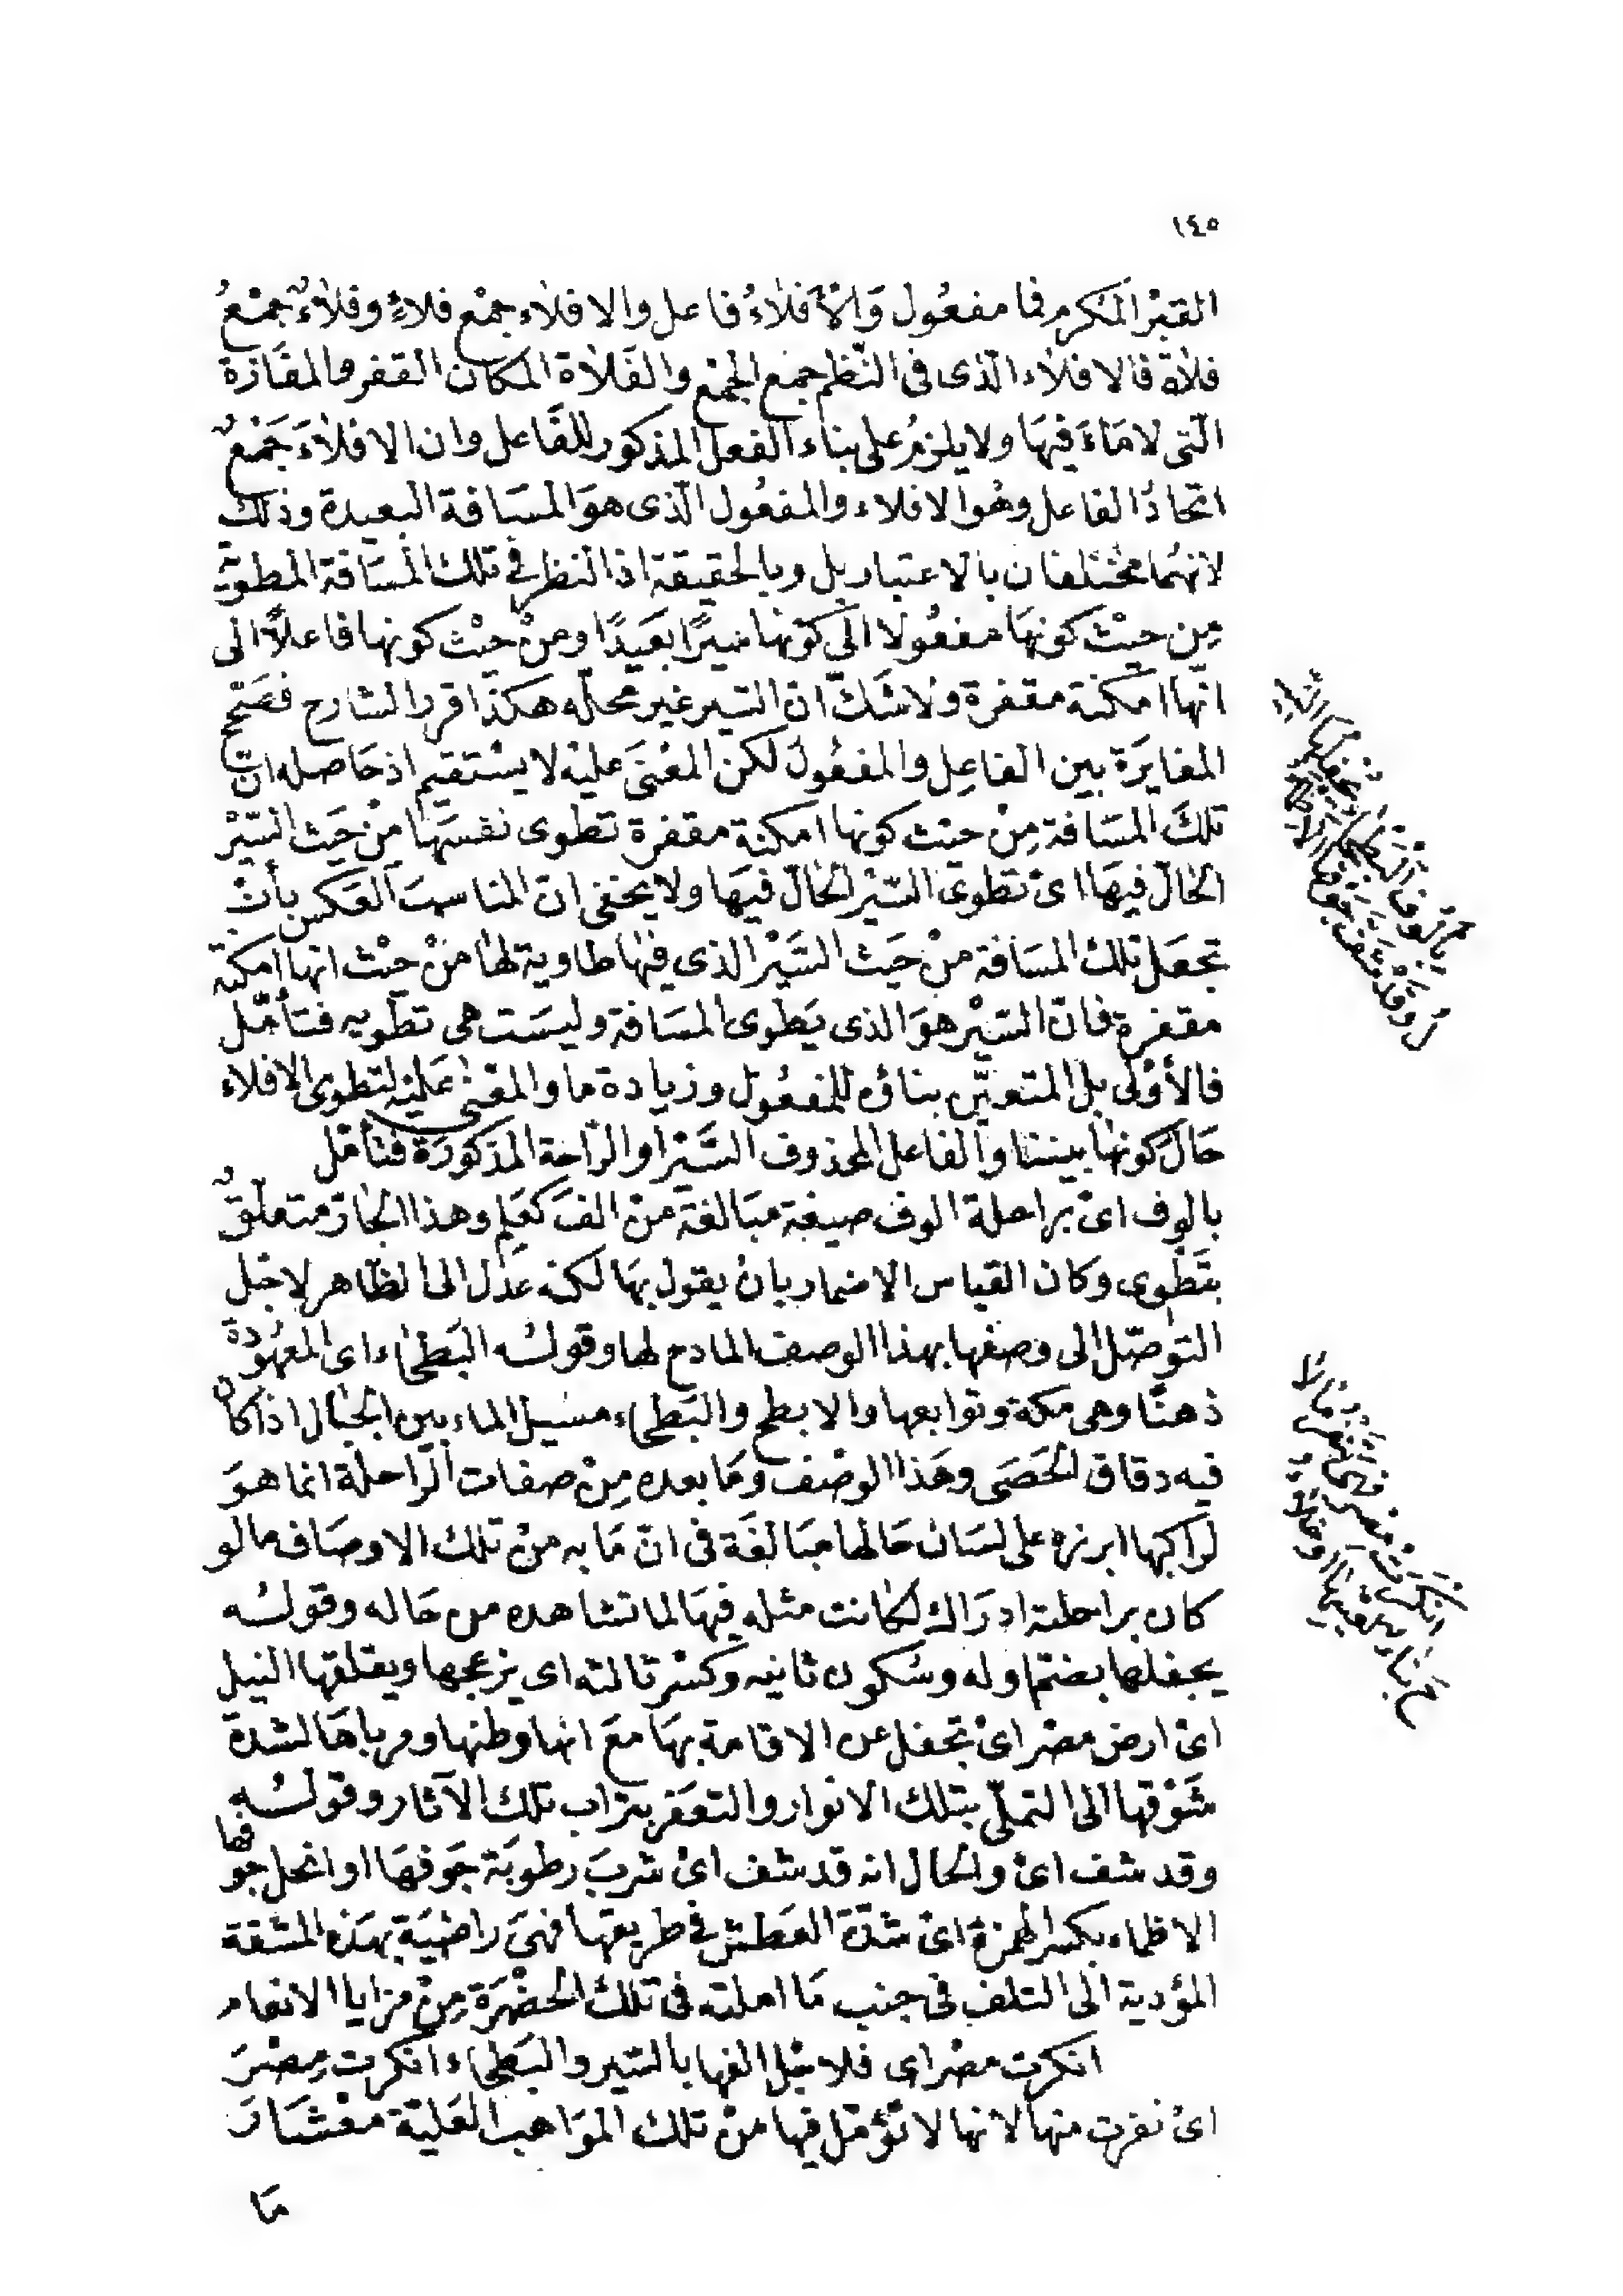 ١٤٥
القبر المكرم فما مفعُول وَالأفلاءُ فاعل والافلاء جمْع فلاءٍ وفلاءٌ جمْعُ
فلاة فالافلاء الّذى فى النّظم جمع الجمْع والفَلاة المكان القفر والمفَازة
الّتى لا مَاءَ فيهَا ولا يلزمُ على بناء الفعل المذكور للفَاعل وان الافلاءَ جَمْعٌ
اتحادُ الفاعل وهُو الافلاء والمفعُول الّذى هوَ المسَافة البعيدة وذلك
لانهُما مختلفان بالاعتبار بل وبالحقيقة اذ النظر فى تلك المسَافة المطويّة
مِن حيْث كونهَا مفعُولا الى كونها سيرًا بعَيدًا ومنْ حيْث كونها فاعلاً الى
انّها امكنة مقفرة ولا شَكّ انّ السّير غير محلّه هكذا قرر الشارح فصَحّ
المغايَرة بين الفاعِل والمفعُول لكن المعْنى عليْه لا يسْتقيم اذ حَاصله انّ
تلكَ المسَافة مِنْ حيث كونها امكنة مقفرة تطوى نفسَهَا منْ حَيث السّيْر
الحَالّ فيهَا اىْ تطوى السّيْر الحَالّ فيهَا ولا يخفى انّ المناسبَ العَكس بأنْ
تجعَل تلك المسَافة منْ حَيث السَّيْر الذى فيْها طاوية لها منْ حيْث انها امكنة
مقفرة فانّ السّيْر هوَ الذى يَطوى المسَافة وليسَت هى تطويه فتأمّل
فالأوْلى بل المتعيّن بناؤه للمفعُول وزيادة ما والمعْنى عَليْه لتطوى الافلاء
حَالَ كونهَا بيننا والفاعل المحذوف السَّيْر او الرّاحلة المَذكورَة فتأمّل
بالوف اىْ براحلة الوف صيغة مبَالغة منْ الفَ كعَلِم وهذا الجَارّ متعلّقٌ
بتَطوى وكان القياس الاضمار بانْ يقول بهَا لكنه عدَل الى الظاهر لاجْل
التوصّل الى وصفها بهذا الوصف المادح لها وقولـُه البَطحَاء اى المعهُودة
ذهنًا وهى مكة وتوابعها والابطح والبَطحَاء مسيل الماء بين الجبَال اذا كان
فيه دقاق الحَصَى وهَذا الوصْف ومَا بعده مِنْ صفات الرّاحلة انما هوَ
لراكبها ابرزه على لسَان حَالها مبَالغَة فى انّ مَا به منْ تلك الاوصَاف ما لو
كان براحلته ادرَاك لكانت مثله فيهَا لما تشاهده من حَاله وقولـُه
يجفلها بضمّ اوله وسُكون ثانيه وكسْر ثالثه اى يزعجها ويقلقها النيل
اىْ ارض مصْر اىْ تجفل عن الاقامة بهَا معَ انها وطنها ومرباهَا لشدة
شَوْقها الى التملّى بتلك الانوار والتعَفر بترَاب تلك الآثار وقولـُه
وقد شف اىْ والحَال انه قد شف اىْ شربَ رطوبَة جَوفهَا او انحل جوفها
الاظماء بكسر الهمزة اىْ شدّة العَطش فى طريقها فهىَ راضيَة بهَذه المشقة
المؤدية الى التلف فى جنب مَا املته فى تلك الحَضْرَة مِنْ مزايا الانعام
انكرت مصْر اى فلاجْل الفها بالسّير والبَطحَاء انكرت مِصْرَ
اىْ نفرت منها لانها لا تؤمّل فيها منْ تلك الموَاهب العَليّة معْشَارَ
مَا
بألُوفِ البَطحَاءِ يُجفلها النيلُ
لُ وقَدْ شفّ جَوفَهَا الاظماءُ
انكرَتْ مِصْرَ فهىَ تنفرُ مَا لا
حَ بناء لعينها أو خلاءُ